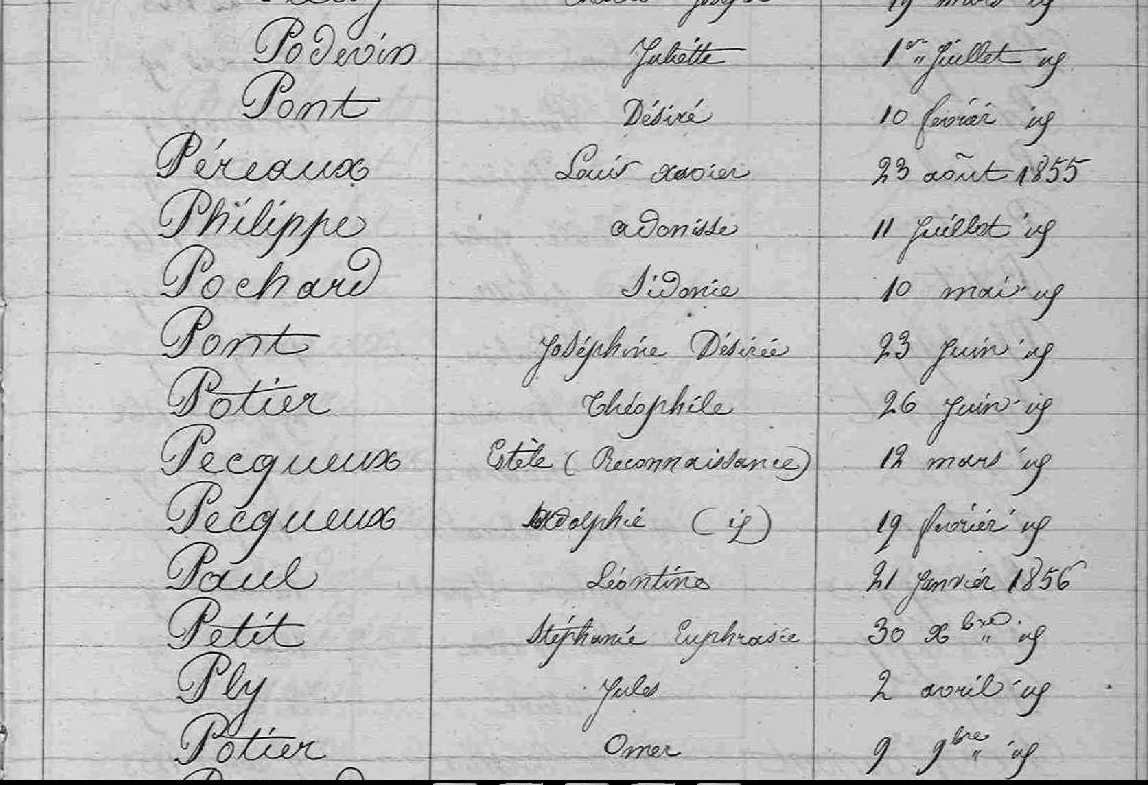 19 mars id
Podevin Juliette 1er Juillet id
Pont Désiré 10 février id
Péreaux Louis Xavier 23 août 1855
Philippe adonisse 11 Juillet id
Pochard Sidonie 10 mai id
Pont Joséphine Désirée 23 Juin id
Potier Théophile 26 Juin id
Pecqueux Estèle (Reconnaissance) 12 mars id
Pecqueux Adolphie (id) 19 février id
Paul Léontine 21 Janvier 1856
Petit Stéphanie Euphrasie 30 xbre id
Ply Jules 2 avril id
Potier Omer 9 9bre id